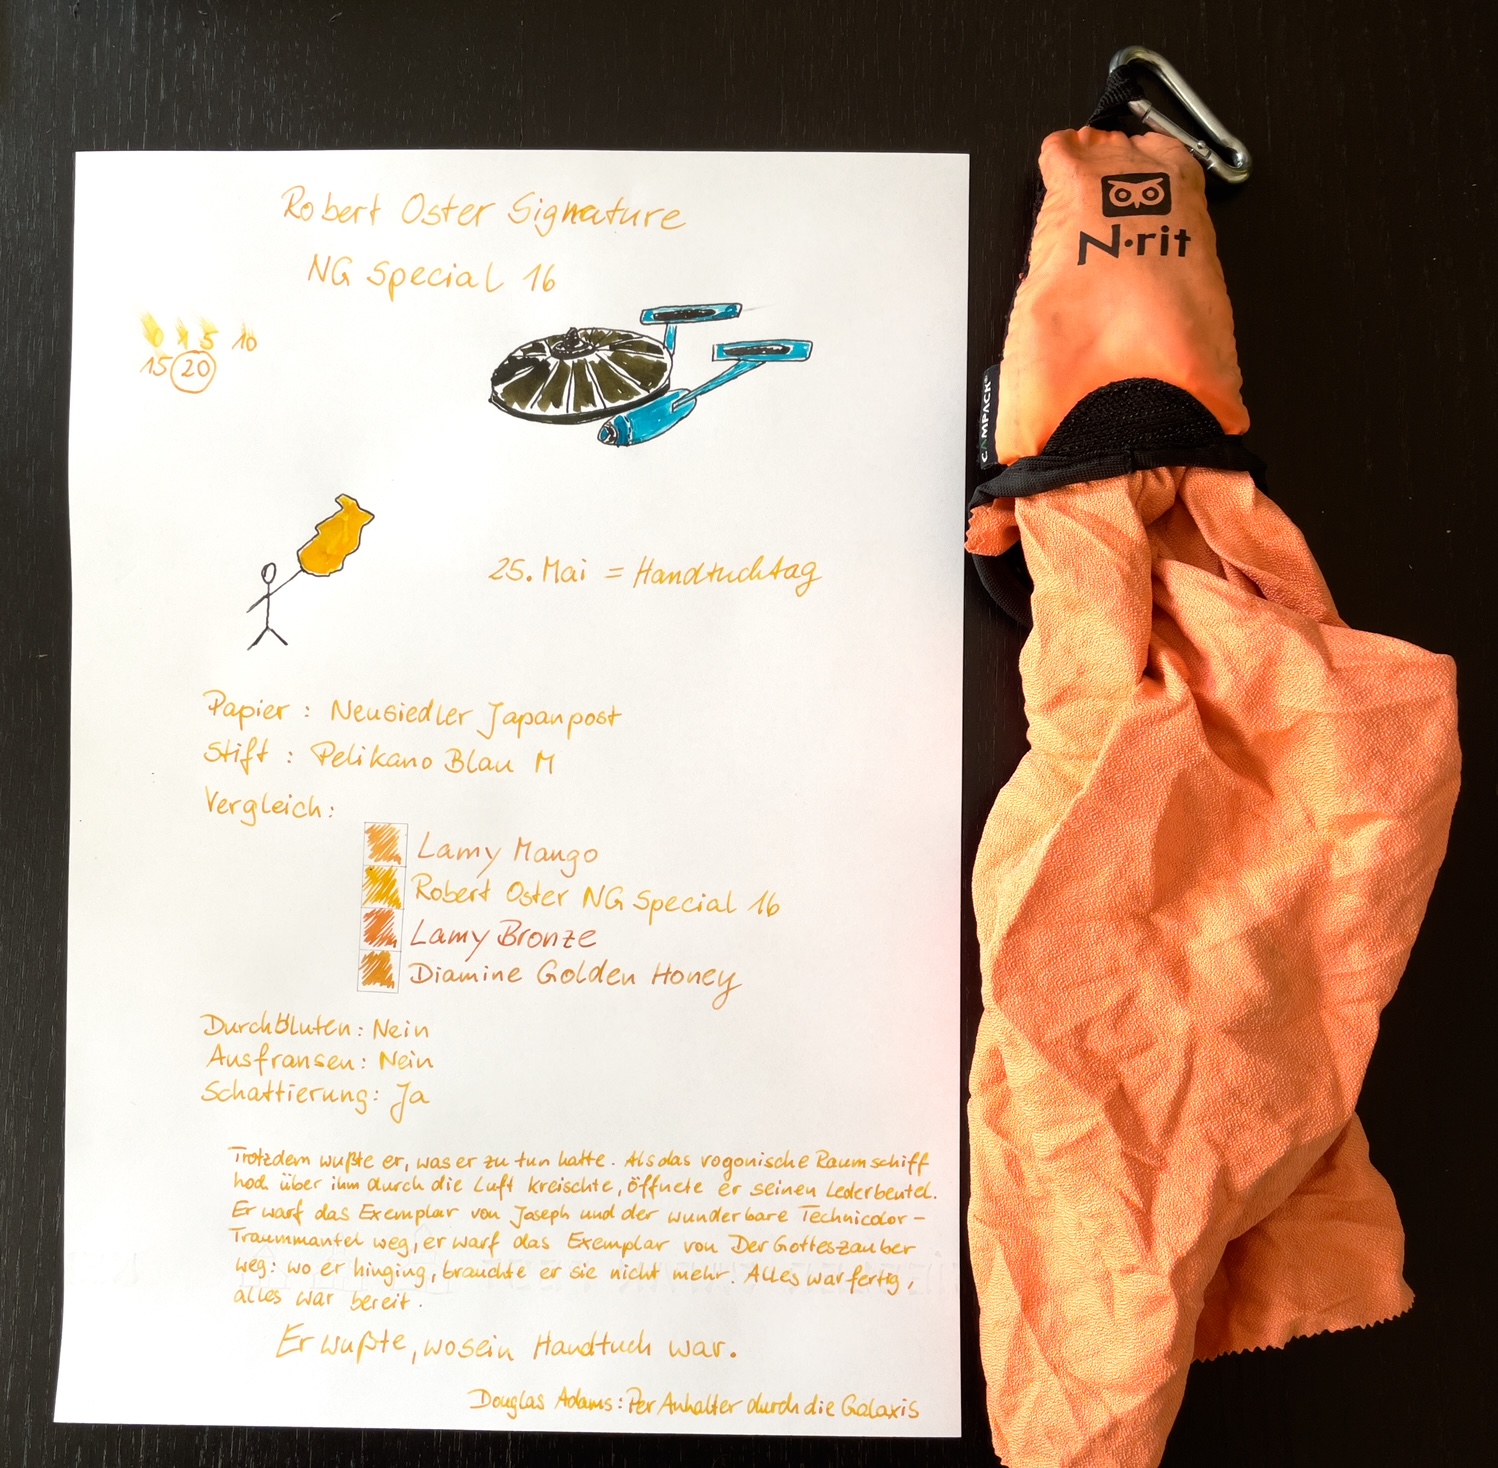 Robert Oster Signature
NG Special 16
0 1 5 10
15 20
25. Mai = Handtuchtag
Papier : Neusiedler Japanpost
Stift : Pelikano Blau M
Vergleich:
Lamy Mango
Robert Oster NG Special 16
Lamy Bronze
Diamine Golden Honey
Durchbluten: Nein
Ausfransen: Nein
Schattierung: Ja
Trotzdem wußte er, was er zu tun hatte. Als das vogonische Raumschiff
hoch über ihm durch die Luft kreischte, öffnete er seinen Lederbeutel.
Er warf das Exemplar von Joseph und der wunderbare Technicolor-
Traummantel weg, er warf das Exemplar von Der Gotteszauber
weg: wo er hinging, brauchte er sie nicht mehr. Alles war fertig,
alles war bereit.
Er wußte, wo sein Handtuch war.
Douglas Adams: Per Anhalter durch die Galaxis
N·rit
CAMPACK